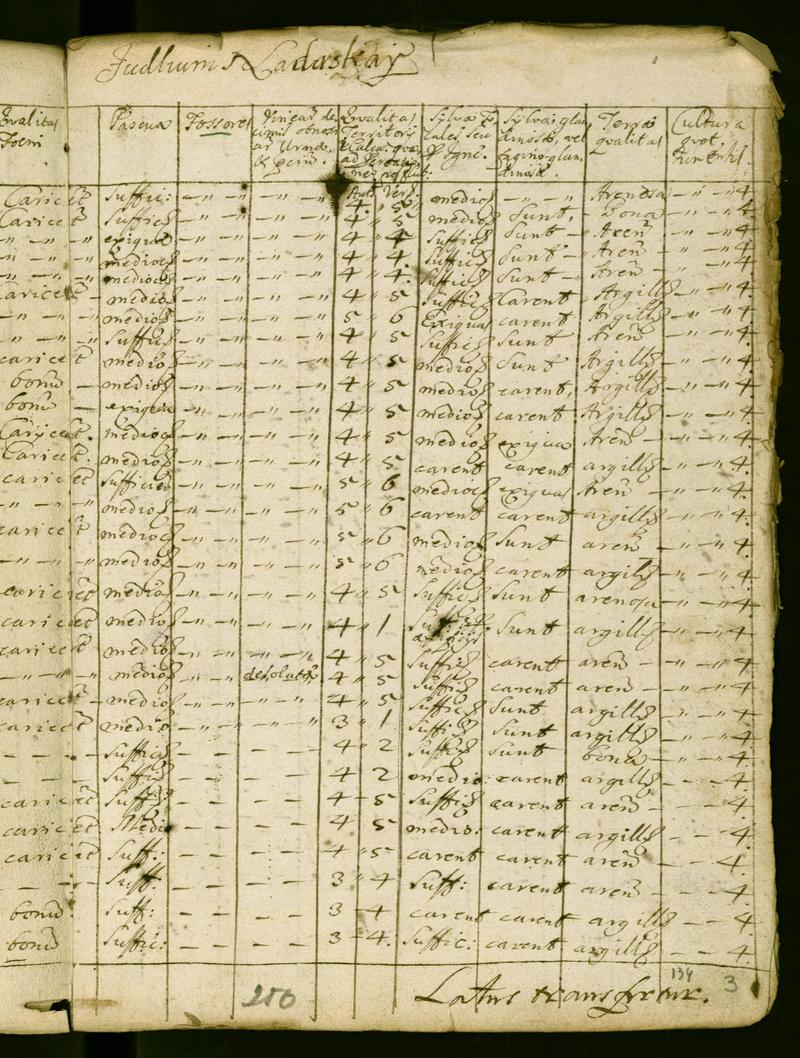 Judlium Ladaskay
Qvalitas Foeni Pascua Fossores Vinear decimis obnox ar Urnae, & Geniu. Qvalitas Territorii Sylvae Focales, seu Ligne. Sylvae glandinosae, vel Terrae qvalitas Cultura quot Iuvenci.
Aut. Vers.
Caricet Suffic: — „ — „ — — „ 4 „ 5 medioc — „ — „ Arenosa — „ — „ 4
Caricet Suffic — „ — „ — — „ 4 „ 5 medioc Sunt, — Bona — „ — „ 4
„ — „ exigua — „ — „ — — „ 4 „ 4 Suffic Sunt — Aren — „ — „ 4
„ — „ medioc — „ — „ — — „ 4 „ 4 Suffic Sunt — Aren — „ — „ 4
„ — „ medioc — „ — „ — — „ 4 „ 4 Suffic Sunt — Aren — „ — „ 4
Caricet medioc — „ — „ — — „ 4 „ 5 Suffic Carent Argill — „ — „ 4
— „ — „ medioc — „ — „ — — „ 5 „ 6 Exigua carent Argill — „ — „ 4
— „ — „ Suffic — „ — „ — — „ 4 „ 5 Suffic Sunt Aren — „ — „ 4
caricet medioc — „ — „ — — „ 4 „ 5 medioc Sunt Argill — „ — „ 4
bonu — medioc — „ — „ — — „ 4 „ 5 medioc carent, Argill — „ — „ 4
bonu — exigua — „ — „ — — „ 4 „ 5 medioc carent Argill — „ — „ 4
Caricet. medioc — „ — „ — — „ 4 „ 5 medioc exigua Aren — „ — „ 4
Caricet medioc — „ — „ — — „ 4 „ 5 carent carent argill — „ — „ 4
caricet Sufficien — „ — „ — — „ 5 „ 6 medioc exigua Aren — „ — „ 4
— „ — „ medioc — „ — „ — — „ 5 „ 6 carent carent argill — „ — „ 4
caricet medioc — „ — „ — — „ 5 „ 6 medioc Sunt aren — „ — „ 4
— „ — „ medioc — „ — „ — — „ 5 „ 6 medioc carent argill — „ — „ 4
caricet medioc — „ — „ — — „ 4 „ 5 Suffic Sunt arenosa — „ — „ 4
caricet medio — „ — „ — — „ 4 „ 1 Sunt argill — „ — „ 4
caricet medioc — „ — „ — — „ 4 „ 5 Suffic carent aren — „ — „ 4
— — medioc — „ — „ desolat 4 „ 5 Suffic carent aren — „ — „ 4
caricet medioc — „ — „ — — „ 4 „ 5 Suffic Sunt argill — „ — „ 4
caricet medio — „ — „ — — „ 3 „ 1 Suffic Sunt argill — „ — „ 4
— — Suffic — — — — 4 „ 2 Suffic Sunt bona — — 4
— — Suffic — — — — 4 2 medio: carent argill — — 4
caricet Suffic — — — — 4 - 5 Suffic carent aren — — 4
caricet Medi — — — — 4 5 medio: carent argill — — 4
caricet Suff: — — — — 4 „ 5 carent carent aren — — 4
— — Suff. — — — — 3 „ 4 Suff: carent aren — — 4
bonu Suff: — — — — 3 - 4 carent carent argill — — 4
bonu Suffic: — — — — 3 - 4. Suffic: carent argill — — 4
Latus transfertur.
134 3
250